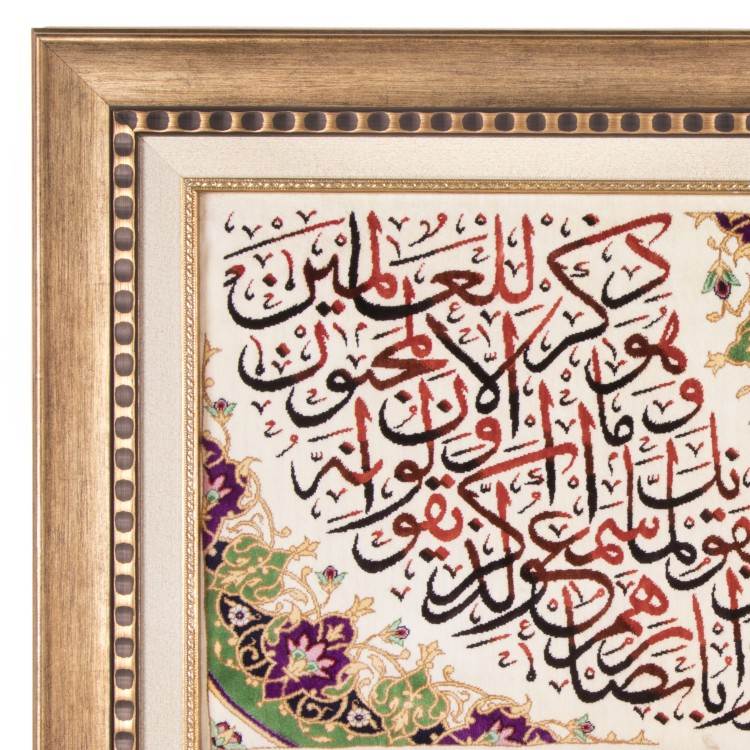 بأبصارهم
لما سمعوا الذكر
ويقولون إنه لمجنون
وما هو إلا
ذكر للعالمين